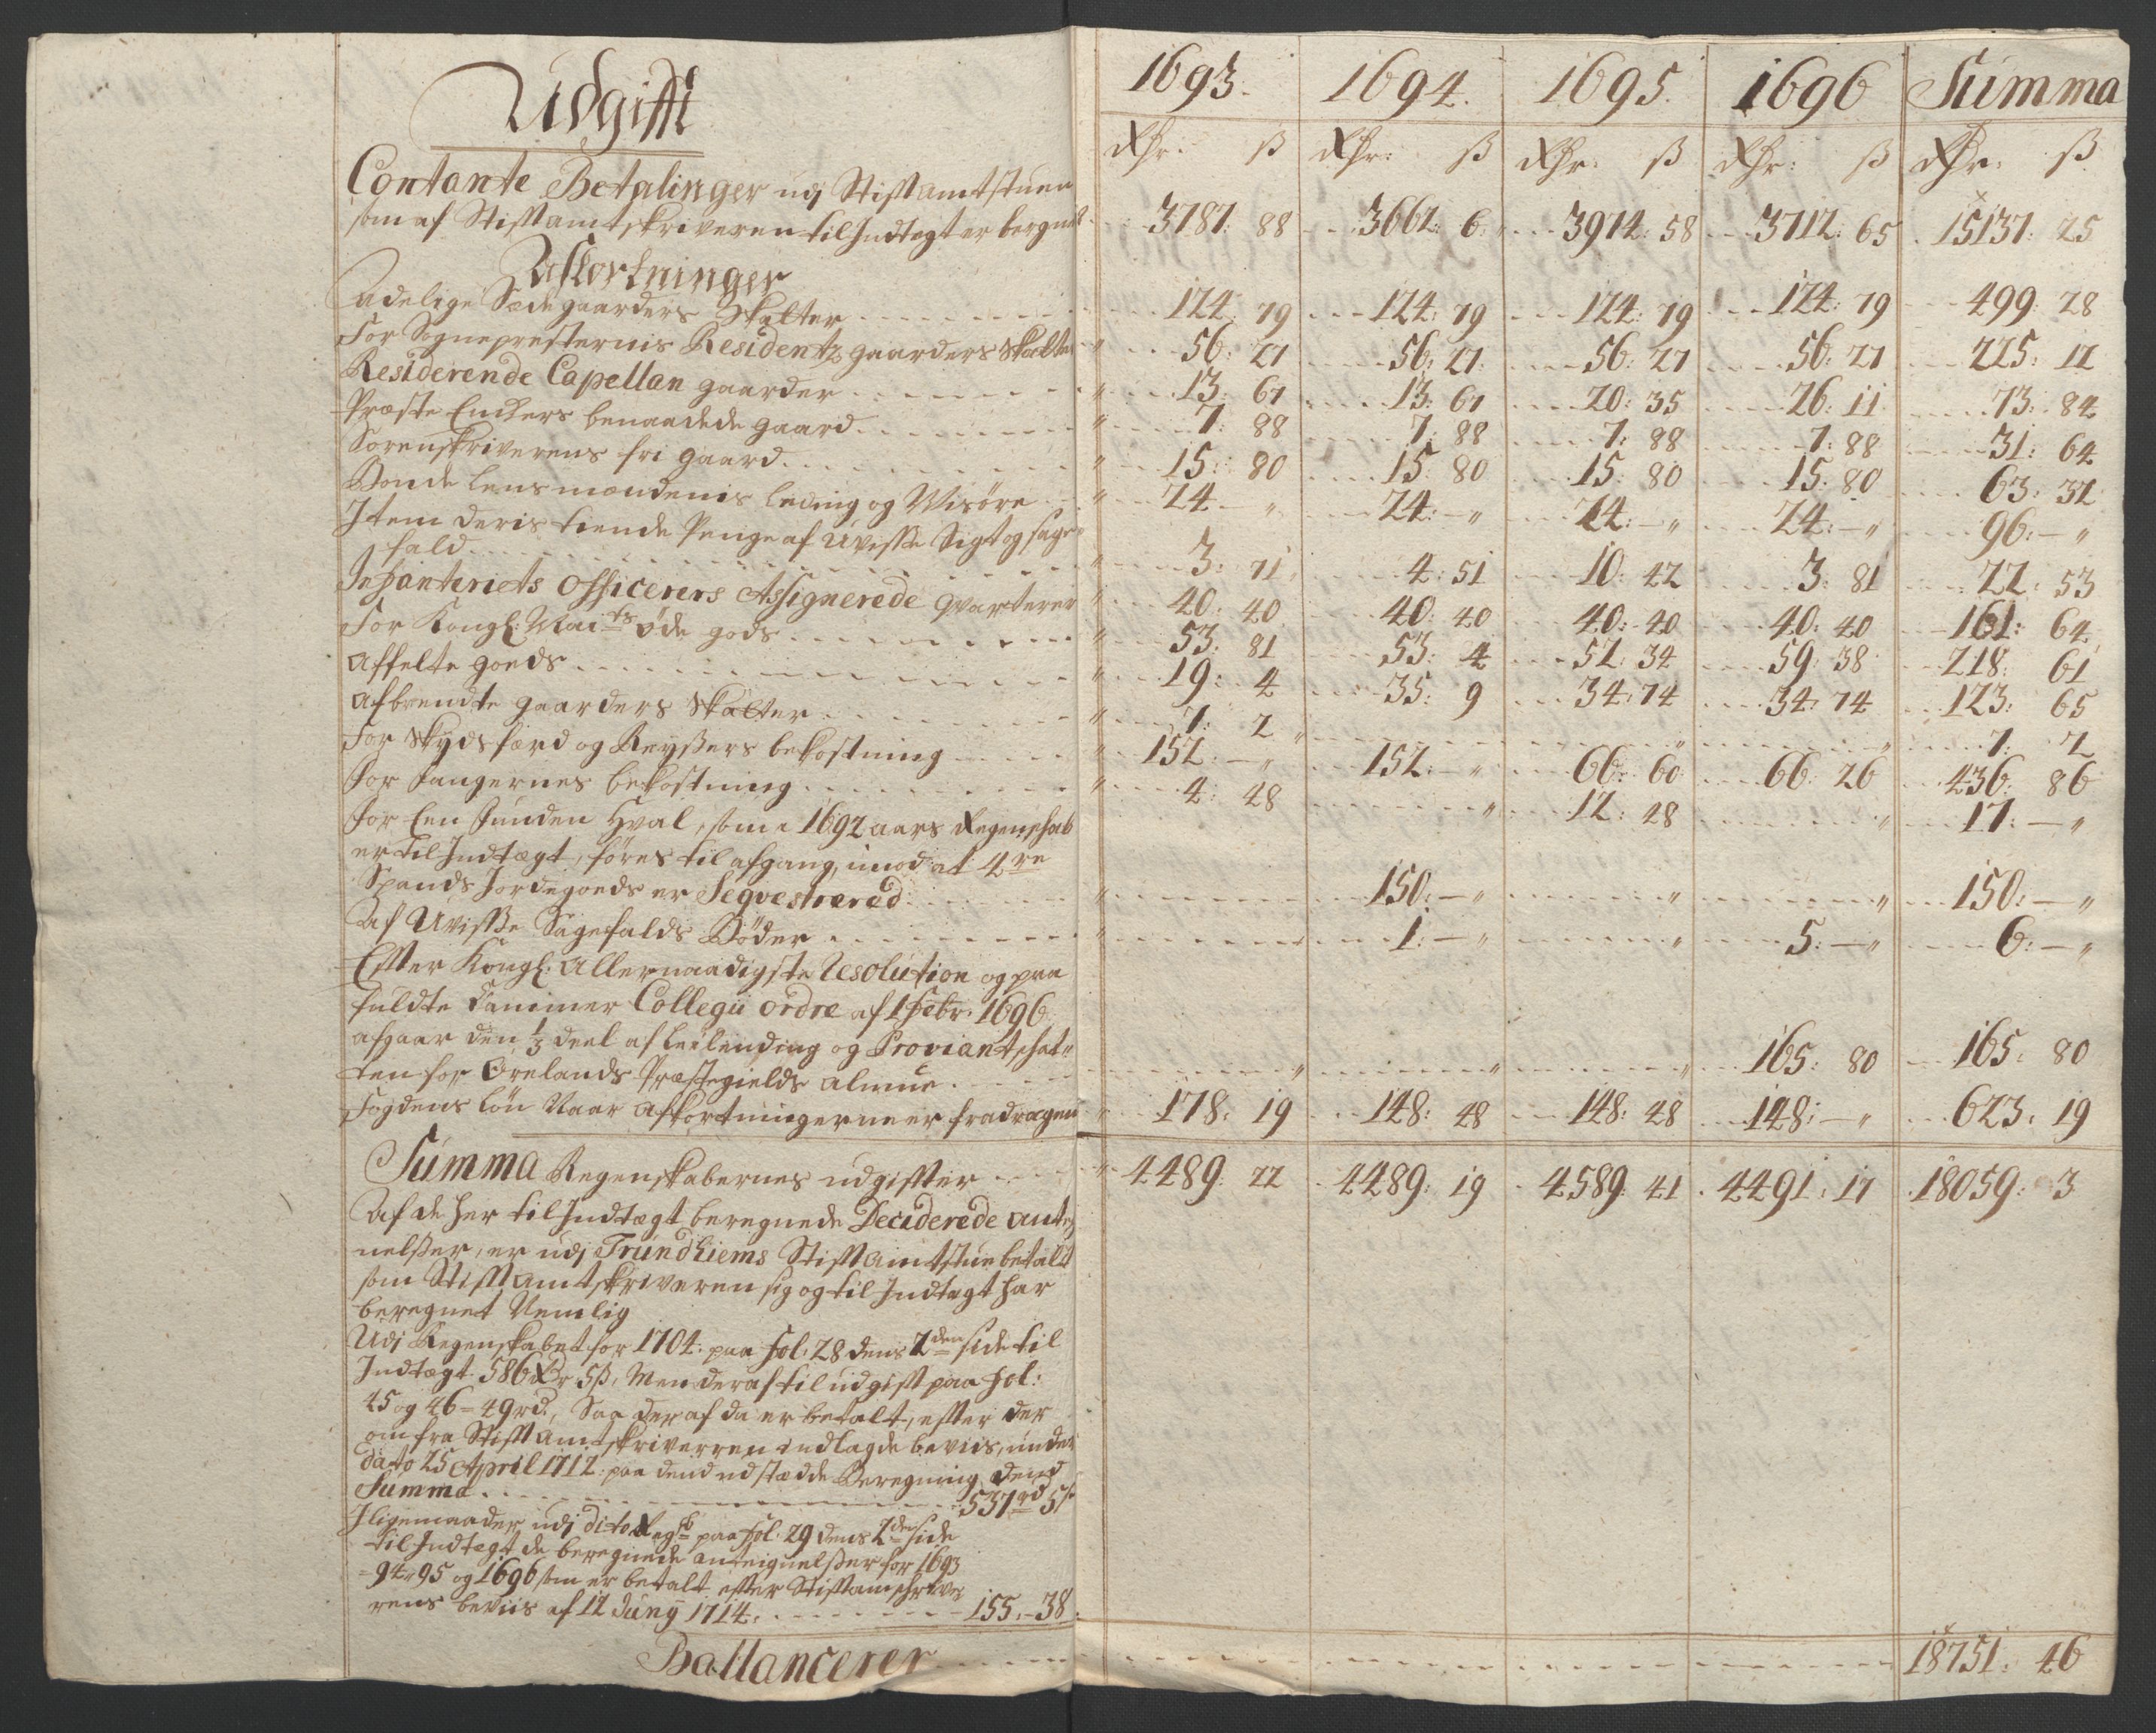 Udgifft
1693. 1694. 1695. 1696 Summa
Rdr: ß Rdr: ß Rdr: ß Rdr: ß Rdr: ß
Contante Betalinger udj Stifftamtstuen
som af Stifftamtskriveren til Indtegt er beregnet 3787: 88 3662: 6 3974: 58 3712: 65 15137: 25
Afkortninger
Adelige Sædegaarders Skatter 124: 79 124: 79 124: 79 124: 79 499: 28
For Sognepresternis Residentz gaarders Skatter 56: 27 56: 27 56: 27 56: 27 225: 12
Residerende Capellan gaarder 13: 67 13: 67 20: 35 26: 11 73: 84
Præste Enchers benaadede gaard 7: 88 7: 88 7: 88 7: 88 31: 64
Sorenskriverens fri gaard 15: 80 15: 80 15: 80 15: 80 63: 32
Bonde lensmændenis leding og Wisöre 24 - " 24: - " 24: - " 24: - " 96: - "
Item deris tiende Penge af Uvisse Sigt og sage
fald 3: 71 4: 51 10: 42 3: 81 22: 53
Infanteriets Officerers Assignerede qvarterer 40: 40 40: 40 40: 40 40: 40 161: 64
For Kongl: Maits öde gods 53: 81 53: 4 52: 34 59: 38 218: 61
Affelte goeds 19: 4 35: 9 34: 74 34: 74 123: 65
Afbrendte gaarders Skatter 7: 2 " " " 7: 2
For Skydsfærd og Reyßers bekostning 152: - " 152: - " 66: 60 66: 26 436: 86
For fangernes bekostning 4: 48 " 12: 48 " 17: - "
For Een funden Hval, som i 1692 aars Regenschab
er til Indtægt, föres til afgang, imod at 4re
Spands Jordegoeds er Seqvestrered " 150: - " " " 150: - "
Af Uvisße Sagefalds Böder " 1: - " " 5: - " 6: - "
Effter Kongl: Allernaadigste Resolution og paa
fuldte Cammer Collegii ordre af 1 Febr: 1696
afgaar den 1/3 deel af Leilending og Proviantschat"
ten for Örelands Præstegields almue " " " 165: 80 165: 80
Fogdens lön Naar afkortningerne er fradragen 178: 19 148: 48 148: 48 148: - " 623: 19
Summa Regenskabernes udgiffter 4489: 22 4489: 19 4589: 41 4491: 17 18059: 3
Af de her til Indtægt beregnede Deciderede Anteg
nelßer, er udj Trundhiems Stifft Amtstue betalt
som Stifft Amtskriveren sig og til Indtegt har
beregnet Nemlig
Udj Regenskabet for 1704: paa fol: 28 dens 2den side til
Indtægt 586 Rdr 5ß, Men deraf til udgifft paa fol:
45 og 46 = 49 rd., Saa deraf da er betalt, effter der
om fra Stifft Amtskriverren indlagde beviis, under
dato 25 April 1712: paa dend udstædde Beregning dend
Summa 537 rd 5ß
Iligemaader udj dito Regsb paa fol. 29 dens 2den side
til Indtegt de beregnede anteignelßer for 1693
= 94, 95 og 1696 som er betalt effter Stifftamschrive
rens beviis af 12 Juny 1714. 155: 38
Ballancerer 18751: 46